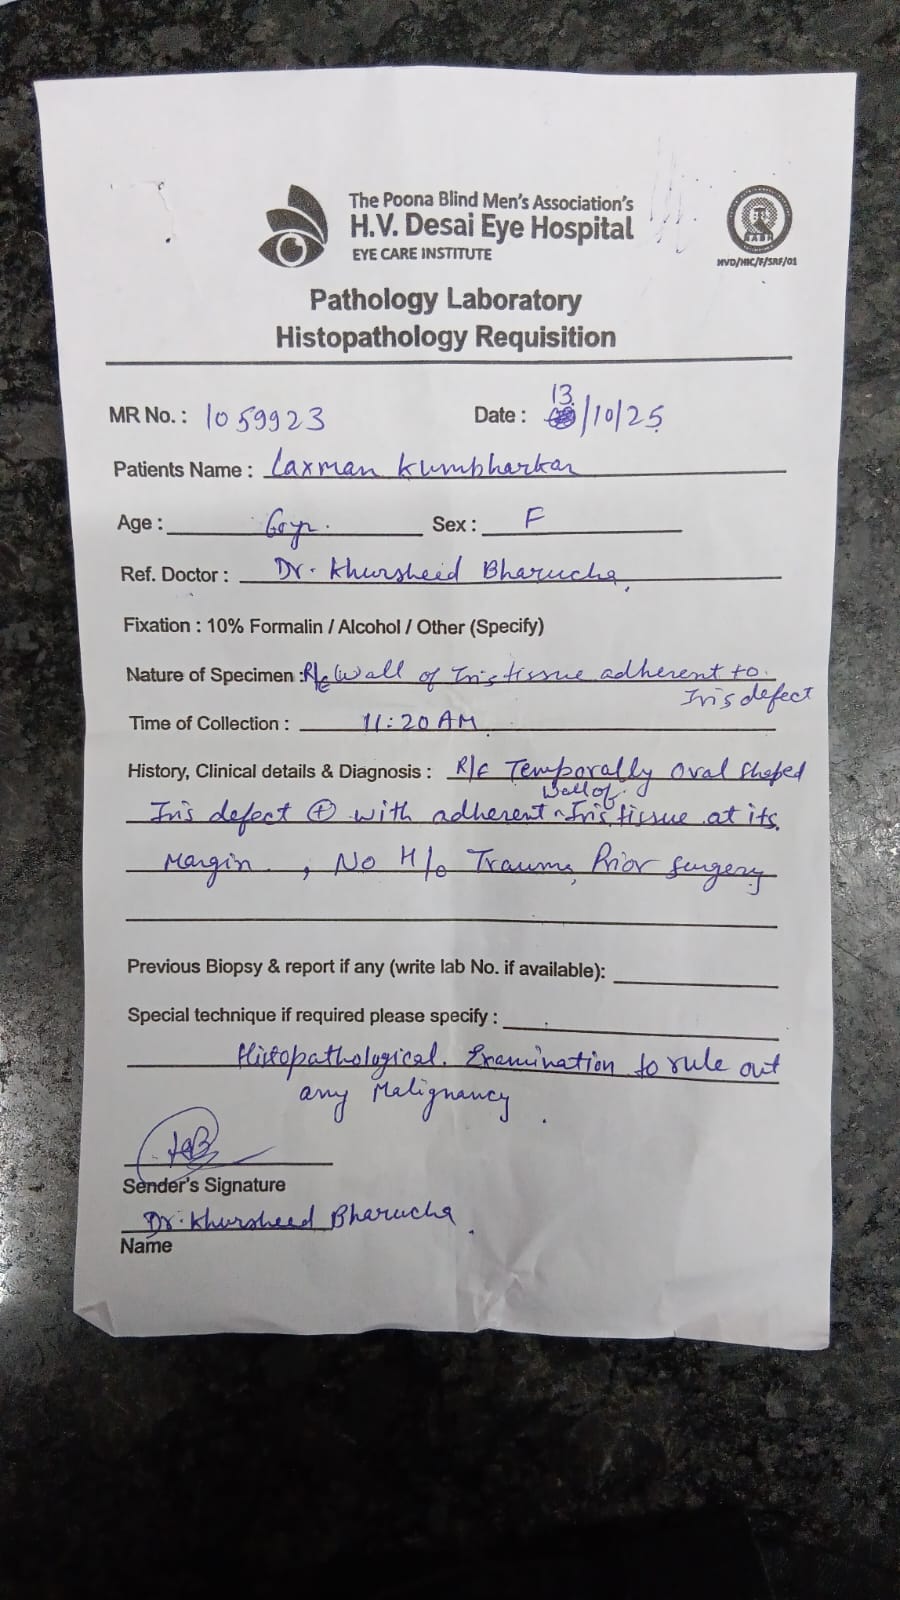 The Poona Blind Men's Association's
H.V. Desai Eye Hospital
EYE CARE INSTITUTE
HVD/HIC/F/SRF/01
Pathology Laboratory
Histopathology Requisition
MR No. : 1059923 Date : 13/10/25
Patients Name : Laxman Kumbharkar
Age : 60yr. Sex : F
Ref. Doctor : Dr. Khursheid Bharucha
Fixation : 10% Formalin / Alcohol / Other (Specify)
Nature of Specimen : R/E Wall of Iris tissue adherent to
Iris defect
Time of Collection : 11:20 AM
History, Clinical details & Diagnosis : R/E Temporally oval shaped
Iris defect ⊕ with adherent wall of Iris tissue at its
Margin , No H/o Trauma, Prior surgery
Previous Biopsy & report if any (write lab No. if available):
Special technique if required please specify :
Histopathological. Examination to rule out
any Malignancy.
Sender's Signature
Dr. Khursheed Bharucha
Name